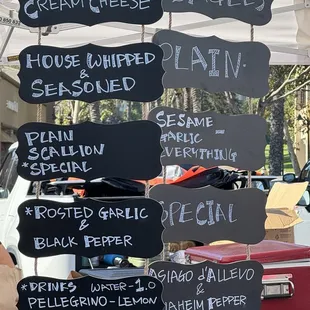 CREAM CHEESE
HOUSE WHIPPED
&
SEASONED
PLAIN
SCALLION
*SPECIAL
*ROSTED GARLIC
&
BLACK PEPPER
*DRINKS WATER-1.0
PELLEGRINO-LEMON
BAGELS
PLAIN.
SESAME
GARLIC -
EVERYTHING
SPECIAL
ASIAGO d'ALLEVO
&
ANAHEIM PEPPER